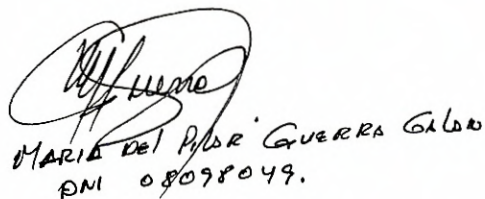 Guerra
MARIA DEL PILAR GUERRA GALAN
DNI 08098049.